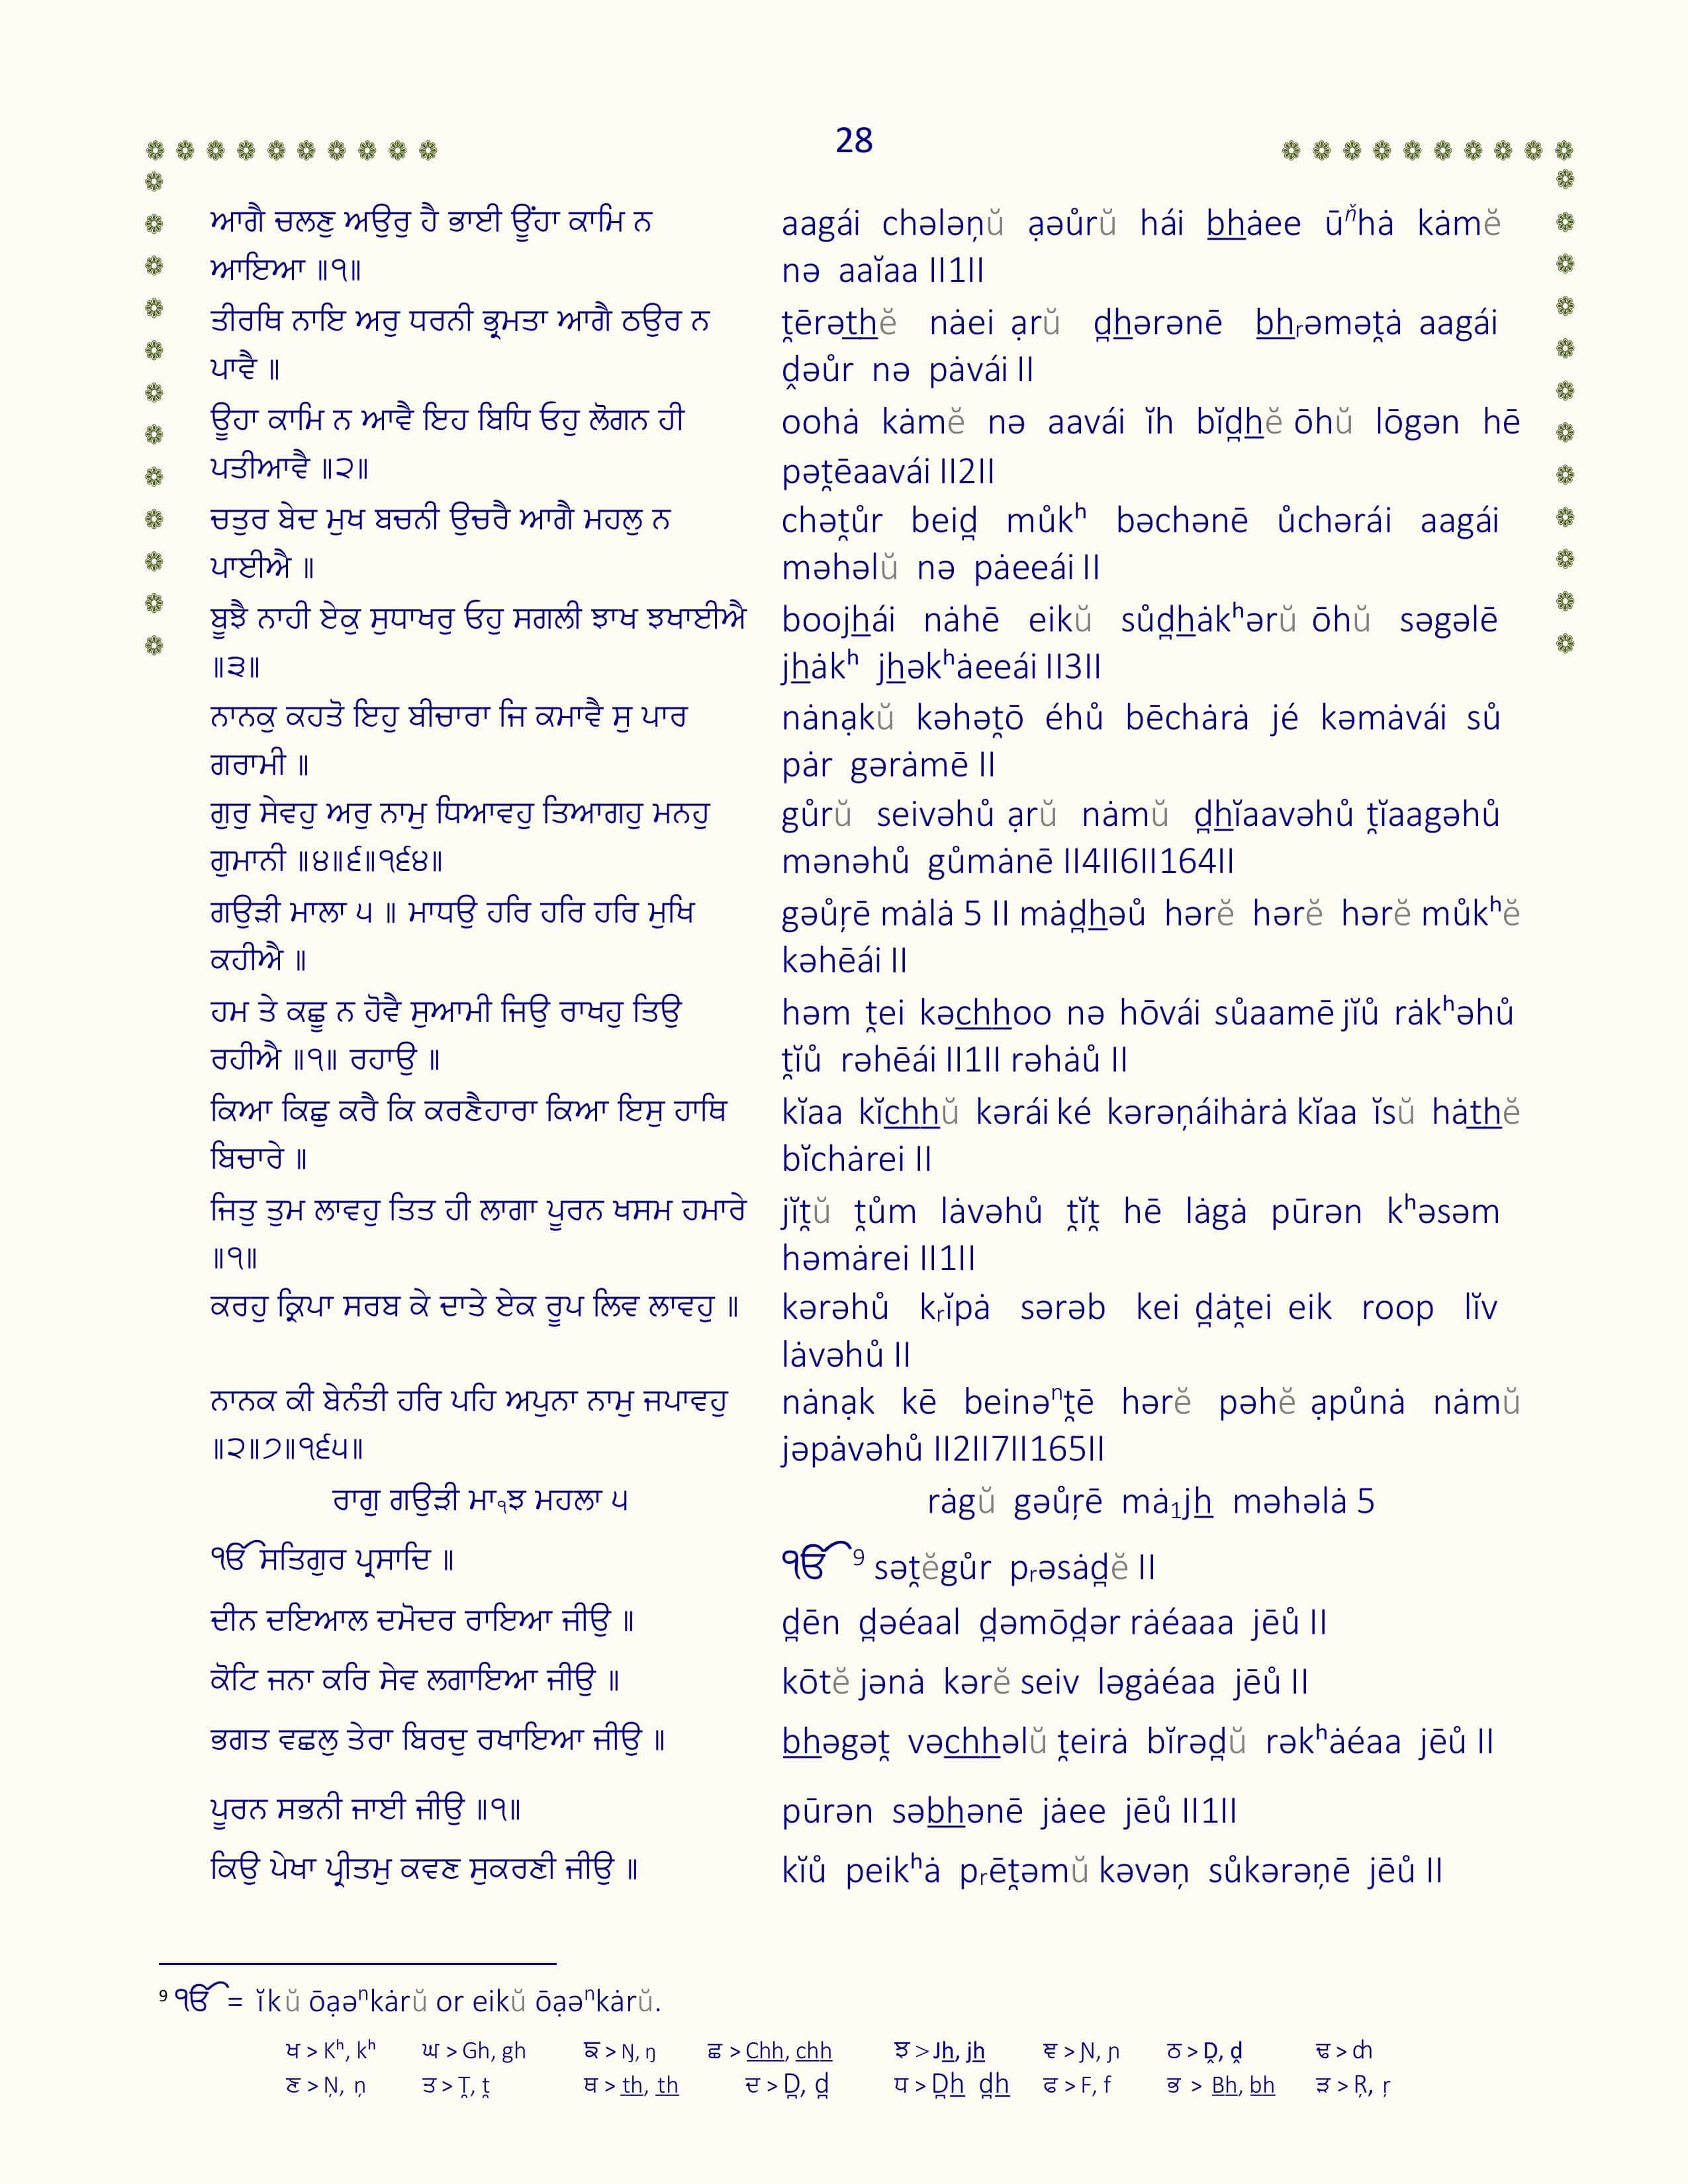 28
ਆਗੈ ਚਲਣੁ ਅਉਰੁ ਹੈ ਭਾਈ ਊਂਹਾ ਕਾਮਿ ਨ
ਆਇਆ ॥੧॥
aagái chələṇŭ ạəůrŭ hái bhȧee ūňhȧ kȧmĕ
nə aaĭaa II1II
ਤੀਰਥਿ ਨਾਇ ਅਰੁ ਧਰਨੀ ਭ੍ਰਮਤਾ ਆਗੈ ਠਉਰ ਨ
ਪਾਵੈ ॥
ṱērəthĕ nȧei ạrŭ ḓhərənē bhᵣəməṱȧ aagái
ḓəůr nə pȧvái II
ਊਹਾ ਕਾਮਿ ਨ ਆਵੈ ਇਹ ਬਿਧਿ ਓਹੁ ਲੋਗਨ ਹੀ
ਪਤੀਆਵੈ ॥੨॥
oohȧ kȧmĕ nə aavái ĭh bĭḓhĕ ōhŭ lōgən hē
pəṱēaavái II2II
ਚਤੁਰ ਬੇਦ ਮੁਖ ਬਚਨੀ ਉਚਰੈ ਆਗੈ ਮਹਲੁ ਨ
ਪਾਈਐ ॥
chəṱůr beiḓ můkʰ bəchənē ůchərái aagái
məhəlŭ nə pȧeeái II
ਬੂਝੈ ਨਾਹੀ ਏਕੁ ਸੁਧਾਖਰੁ ਓਹੁ ਸਗਲੀ ਝਾਖ ਝਖਾਈਐ
॥੩॥
boojhái nȧhē eikŭ sůḓhȧkʰərŭ ōhŭ səgəlē
jhȧkʰ jhəkʰȧeeái II3II
ਨਾਨਕੁ ਕਹਤੋ ਇਹੁ ਬੀਚਾਰਾ ਜਿ ਕਮਾਵੈ ਸੁ ਪਾਰ
ਗਰਾਮੀ ॥
nȧnạkŭ kəhəṱō éhů bēchȧrȧ jé kəmȧvái sů
pȧr gərȧmē II
ਗੁਰੁ ਸੇਵਹੁ ਅਰੁ ਨਾਮੁ ਧਿਆਵਹੁ ਤਿਆਗਹੁ ਮਨਹੁ
ਗੁਮਾਨੀ ॥੪॥੬॥੧੬੪॥
gůrŭ seivəhů ạrŭ nȧmŭ ḓhĭaavəhů ṱĭaagəhů
mənəhů gůmȧnē II4II6II164II
ਗਉੜੀ ਮਾਲਾ ੫ ॥ ਮਾਧਉ ਹਰਿ ਹਰਿ ਹਰਿ ਮੁਖਿ
ਕਹੀਐ ॥
gəůṛē mȧlȧ 5 II mȧḓhəů hərĕ hərĕ hərĕ můkʰĕ
kəhēái II
ਹਮ ਤੇ ਕਛੂ ਨ ਹੋਵੈ ਸੁਆਮੀ ਜਿਉ ਰਾਖਹੁ ਤਿਉ
ਰਹੀਐ ॥੧॥ ਰਹਾਉ ॥
həm ṱei kəchhoo nə hōvái sůaamē jĭů rȧkʰəhů
ṱĭů rəhēái II1II rəhȧů II
ਕਿਆ ਕਿਛੁ ਕਰੈ ਕਿ ਕਰਣੈਹਾਰਾ ਕਿਆ ਇਸੁ ਹਾਥਿ
ਬਿਚਾਰੇ ॥
kĭaa kĭchhŭ kərái ké kərəṇáihȧrȧ kĭaa ĭsŭ hȧthĕ
bĭchȧrei II
ਜਿਤੁ ਤੁਮ ਲਾਵਹੁ ਤਿਤ ਹੀ ਲਾਗਾ ਪੂਰਨ ਖਸਮ ਹਮਾਰੇ
॥੧॥
jĭṱŭ ṱům lȧvəhů ṱĭṱ hē lȧgȧ pūrən kʰəsəm
həmȧrei II1II
ਕਰਹੁ ਕ੍ਰਿਪਾ ਸਰਬ ਕੇ ਦਾਤੇ ਏਕ ਰੂਪ ਲਿਵ ਲਾਵਹੁ ॥
kərəhů kᵣĭpȧ sərəb kei ḓȧṱei eik roop lĭv
lȧvəhů II
ਨਾਨਕ ਕੀ ਬੇਨੰਤੀ ਹਰਿ ਪਹਿ ਅਪੁਨਾ ਨਾਮੁ ਜਪਾਵਹੁ
॥੨॥੭॥੧੬੫॥
nȧnạk kē beinəⁿṱē hərĕ pəhĕ ạpůnȧ nȧmŭ
jəpȧvəhů II2II7II165II
ਰਾਗੁ ਗਉੜੀ ਮਾ੧ਝ ਮਹਲਾ ੫
rȧgŭ gəůṛē mȧ₁jh məhəlȧ 5
ੴ ਸਤਿਗੁਰ ਪ੍ਰਸਾਦਿ ॥
ੴ ⁹ səṱĕgůr pᵣəsȧḓĕ II
ਦੀਨ ਦਇਆਲ ਦਮੋਦਰ ਰਾਇਆ ਜੀਉ ॥
ḓēn ḓəéaal ḓəmōḓər rȧéaaa jēů II
ਕੋਟਿ ਜਨਾ ਕਰਿ ਸੇਵ ਲਗਾਇਆ ਜੀਉ ॥
kōtĕ jənȧ kərĕ seiv ləgȧéaa jēů II
ਭਗਤ ਵਛਲੁ ਤੇਰਾ ਬਿਰਦੁ ਰਖਾਇਆ ਜੀਉ ॥
bhəgəṱ vəchhəlŭ ṱeirȧ bĭrəḓŭ rəkʰȧéaa jēů II
ਪੂਰਨ ਸਭਨੀ ਜਾਈ ਜੀਉ ॥੧॥
pūrən səbhənē jȧee jēů II1II
ਕਿਉ ਪੇਖਾ ਪ੍ਰੀਤਮੁ ਕਵਣ ਸੁਕਰਣੀ ਜੀਉ ॥
kĭů peikʰȧ pᵣēṱəmŭ kəvəṇ sůkərəṇē jēů II
⁹ ੴ = ĭkŭ ōạəⁿkȧrŭ or eikŭ ōạəⁿkȧrŭ.
ਖ > Kʰ, kʰ ਘ > Gh, gh ਙ > Ŋ, ŋ ਛ > Chh, chh ਝ > Jh, jh ਞ > Ɲ, ɲ ਠ > Ḓ, ḓ ਢ > ȸ
ਣ > Ṇ, ṇ ਤ > Ṱ, ṱ ਥ > th, th ਦ > Ḓ, ḓ ਧ > Ḓh ḓh ਫ > F, f ਭ > Bh, bh ੜ > Ṛ, ṛ